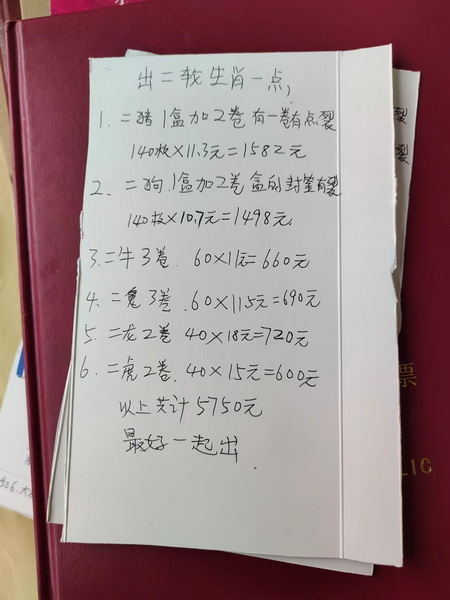 出二轮生肖一点,
1、二猪1盒加2卷有一卷有点裂
140枚×11.3元=1582元
2、二狗.1盒加2卷盒的封签有裂
140枚×10.7元=1498元
3.二牛3卷.60×11元=660元
4.二兔3卷.60×11.5元=690元
5.二龙2卷 40×18元=720元
6.二虎2卷.40×15元=600元
以上共计5750元
最好一起出.
裂
裂
票
LIC